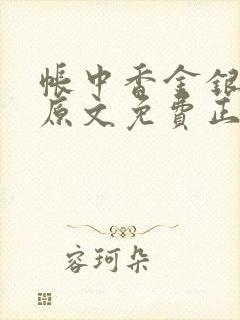 帐中香金银
原文免費正
容珂朵